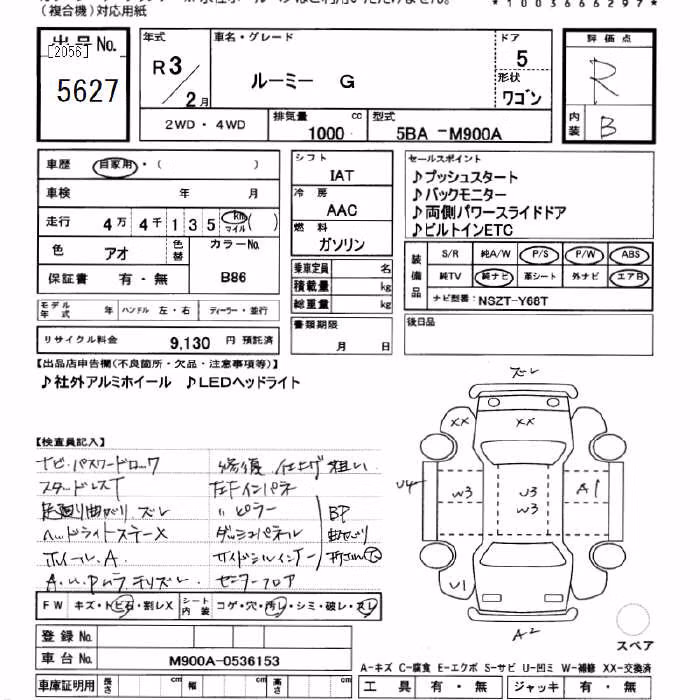 (複合機)対応用紙
*1003666297*
出品No.
[2056]
5627
年式
R3/2月
車名・グレード
ルーミー G
ドア
5
形状
ワゴン
評価点
R
内装
B
2WD・4WD
排気量
1000 cc
型式
5BA-M900A
車歴 自家用・( )
車検 年 月
走行 4万4千135 km マイル ( )
色 アオ
色替
カラーNo.
B86
保証書 有・無
モデル年式 年 ハンドル 左・右 ディーラー・並行
リサイクル料金 9,130 円 預託済
シフト
IAT
冷房
AAC
燃料
ガソリン
乗車定員 名
積載量 kg
総重量 kg
書類期限
月 日
セールスポイント
♪プッシュスタート
♪バックモニター
♪両側パワースライドドア
♪ビルトインETC
装備品
S/R 純A/W P/S P/W ABS
純TV 純ナビ 革シート 外ナビ エアB
ナビ型番: NSZT-Y68T
後日品
【出品店申告欄(不良箇所・欠品・注意事項等)】
♪社外アルミホイール ♪LEDヘッドライト
【検査員記入】
ナビ・パスワードロック
スタッドレスT
足廻り曲がり ズレ
ヘッドライトステーX
ホイール.A
修復 仕上げ粗い
左Fインパネ
〃ピラー
ダッシュパネル
サイドシルインナー
センターフロア
BP
曲がり
FW キズ・トビ石・割レX
シート内装 コゲ・穴・汚レ・シミ・破レ・スレ
登録No.
車台No. M900A-0536153
車庫証明用 長さ cm 幅 cm 高さ cm
ズレ
XX
XX
U4
W3
U3
W3
A1
U1
A2
スペア
A-キズ C-腐食 E-エクボ S-サビ U-凹ミ W-補修 XX-交換済
工具 有・無 ジャッキ 有・無